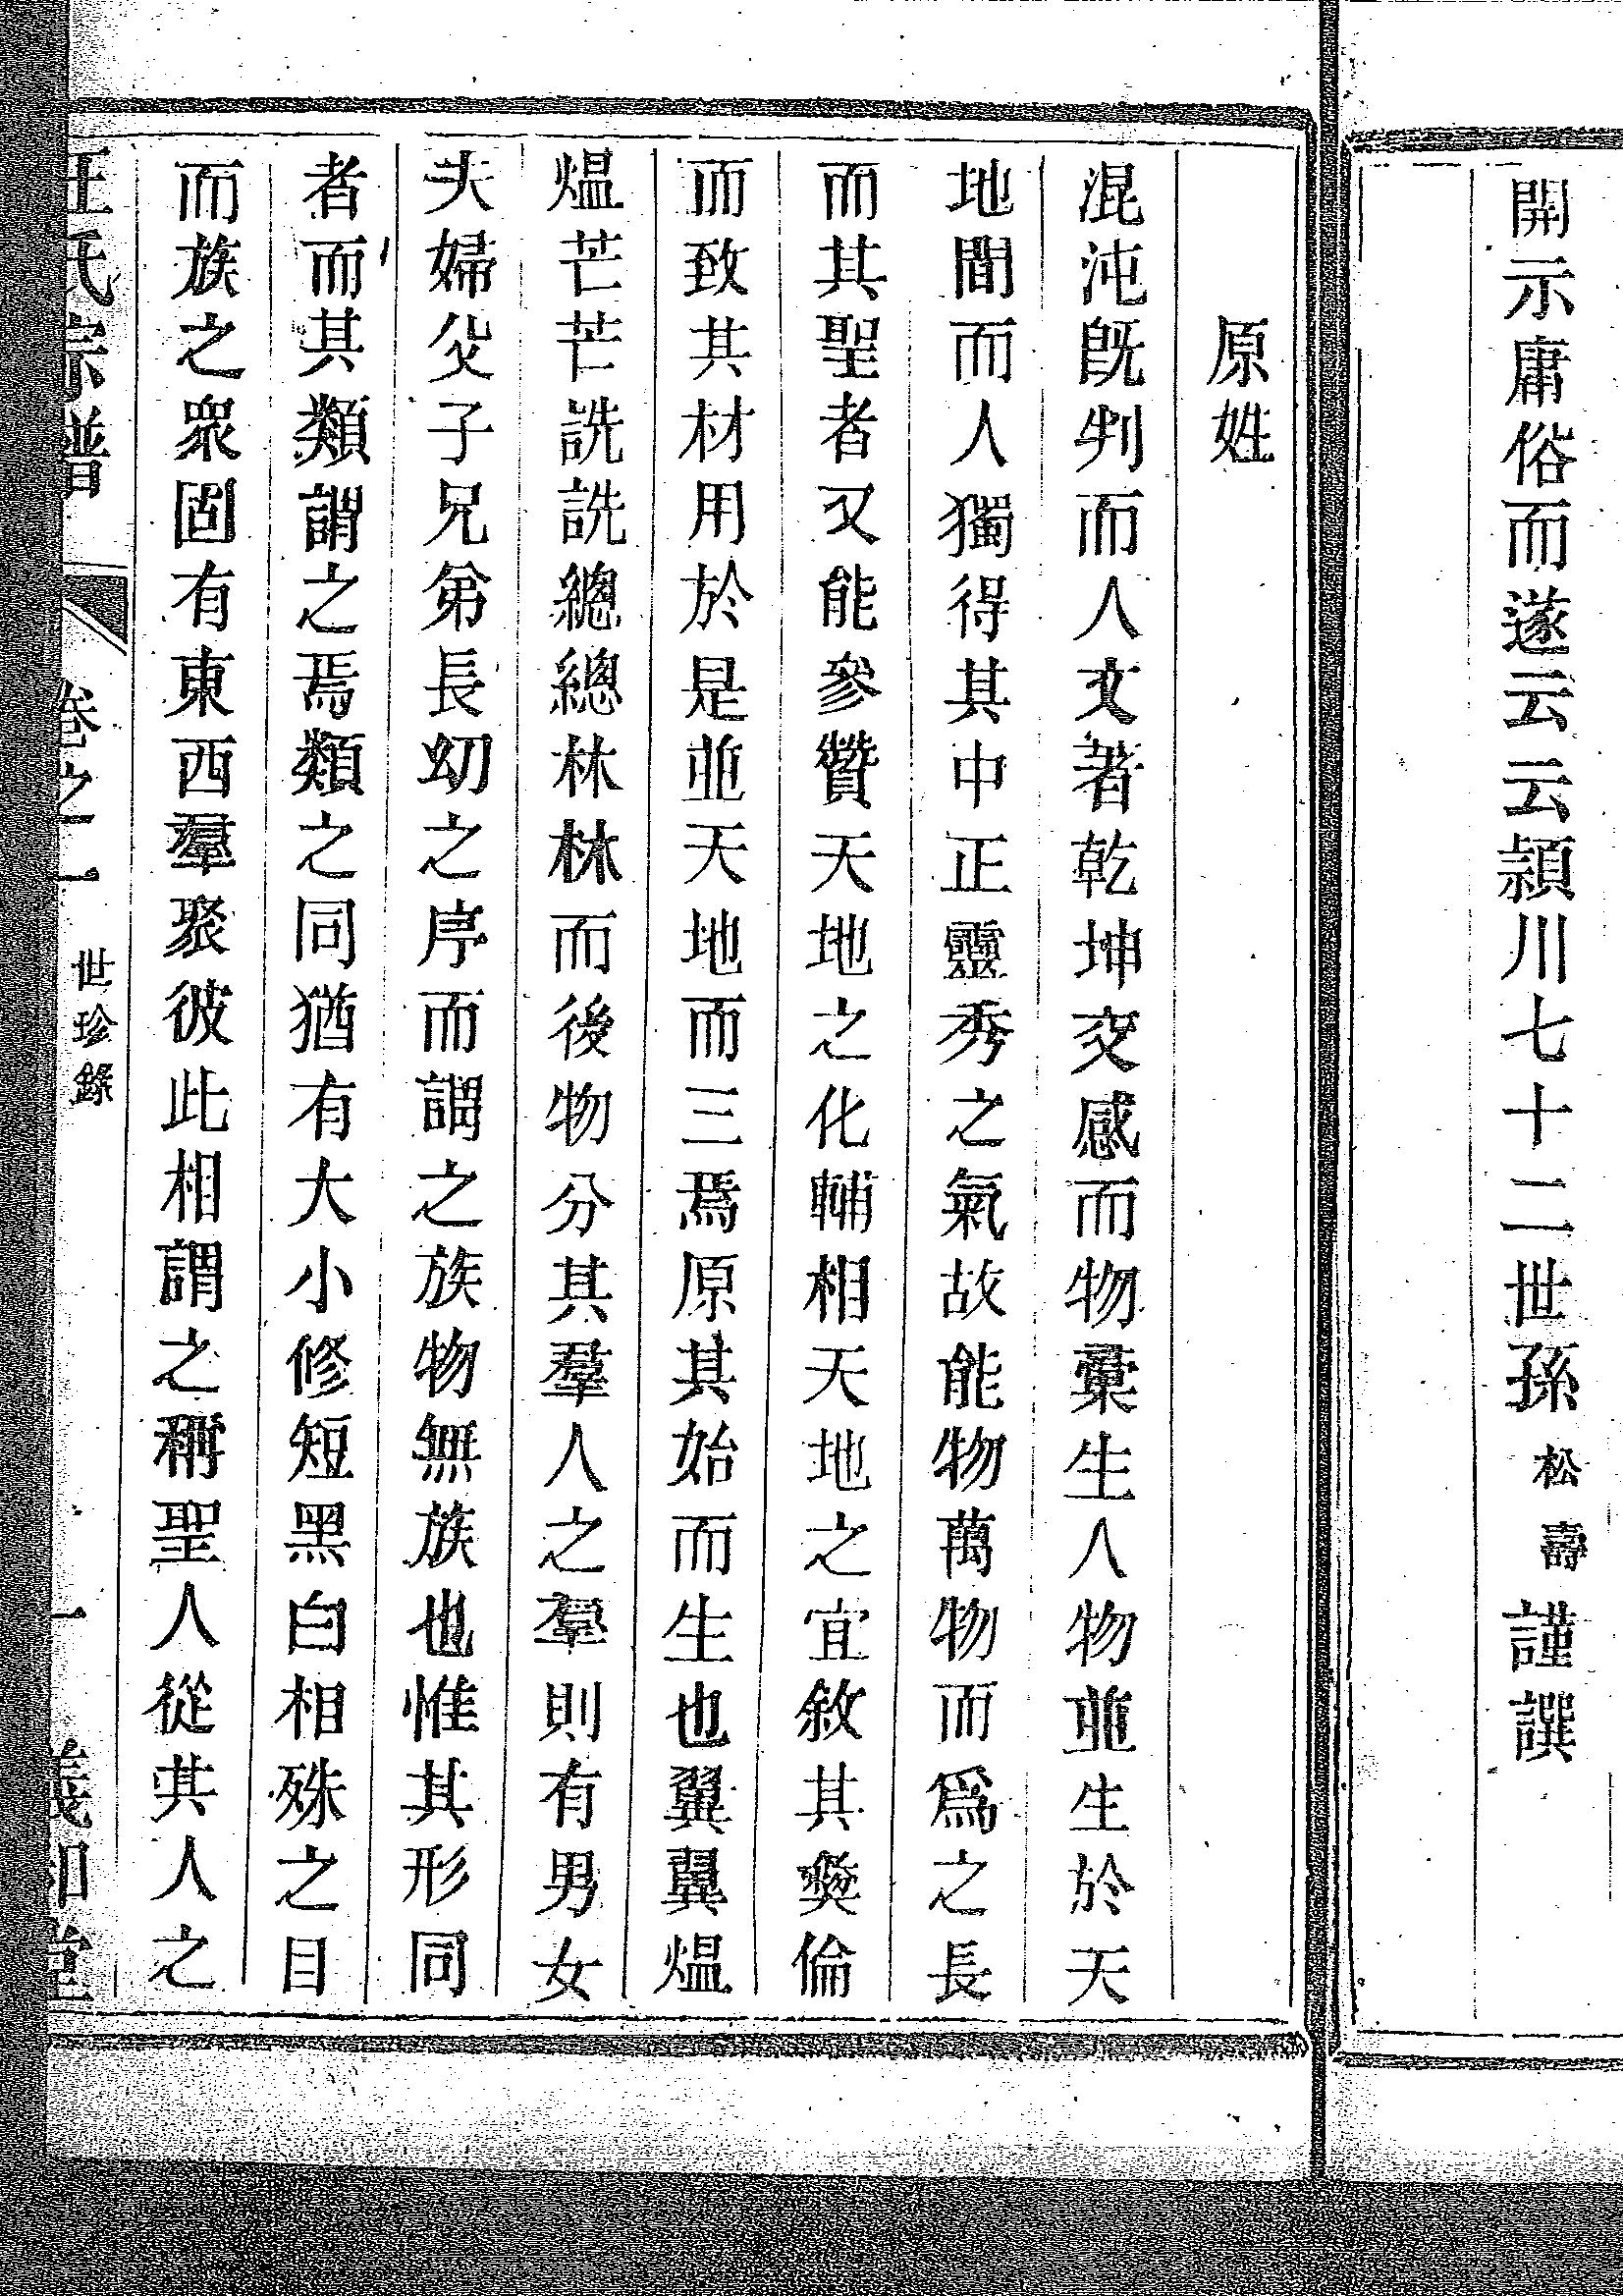 開示庸俗而遂云云潁川七十二世孫松壽謹譔
原姓
混沌旣判而人文著乾坤交感而物彙生人物並生於天
地間而人獨得其中正靈秀之氣故能物萬物而爲之長
而其聖者又能參贊天地之化輔相天地之宜敘其彜倫
而致其材用於是並天地而三焉原其始而生也翼翼熅
熅芒芒詵詵總總林林而後物分其羣人之羣則有男女
夫婦父子兄弟長幼之序而謂之族物無族也惟其形同
者而其類謂之焉類之同猶有大小修短黑白相殊之目
而族之衆固有東西羣聚彼此相謂之稱聖人從其人之
王氏宗譜 卷之一 世珍錄 一 義和堂